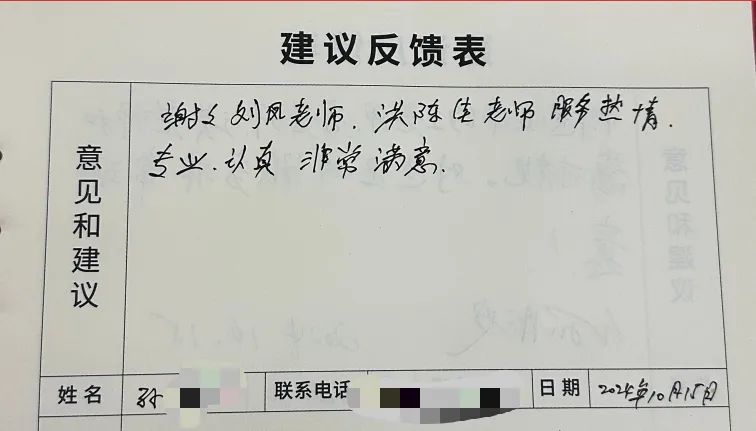 建议反馈表
意见和建议
谢谢刘凤老师、洪陈佳老师服务热情、
专业、认真 非常满意.
姓名 孙 联系电话 日期 2024年10月15日